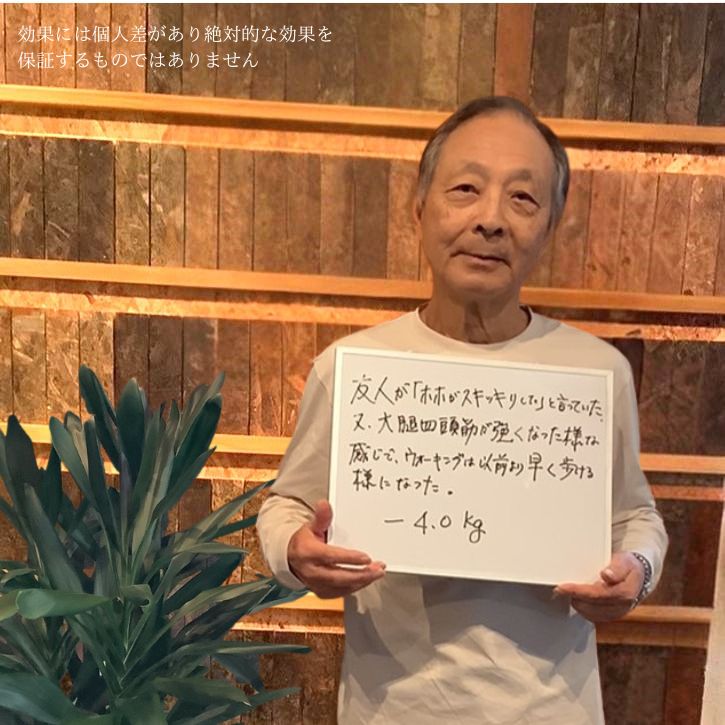 効果には個人差があり絶対的な効果を
保証するものではありません
友人が「ホホがスキッキリした」と言っていた。
又、大腿四頭筋が強くなった様な
感じで、ウォーキングは以前より早く歩ける
様になった。
－4.0 kg